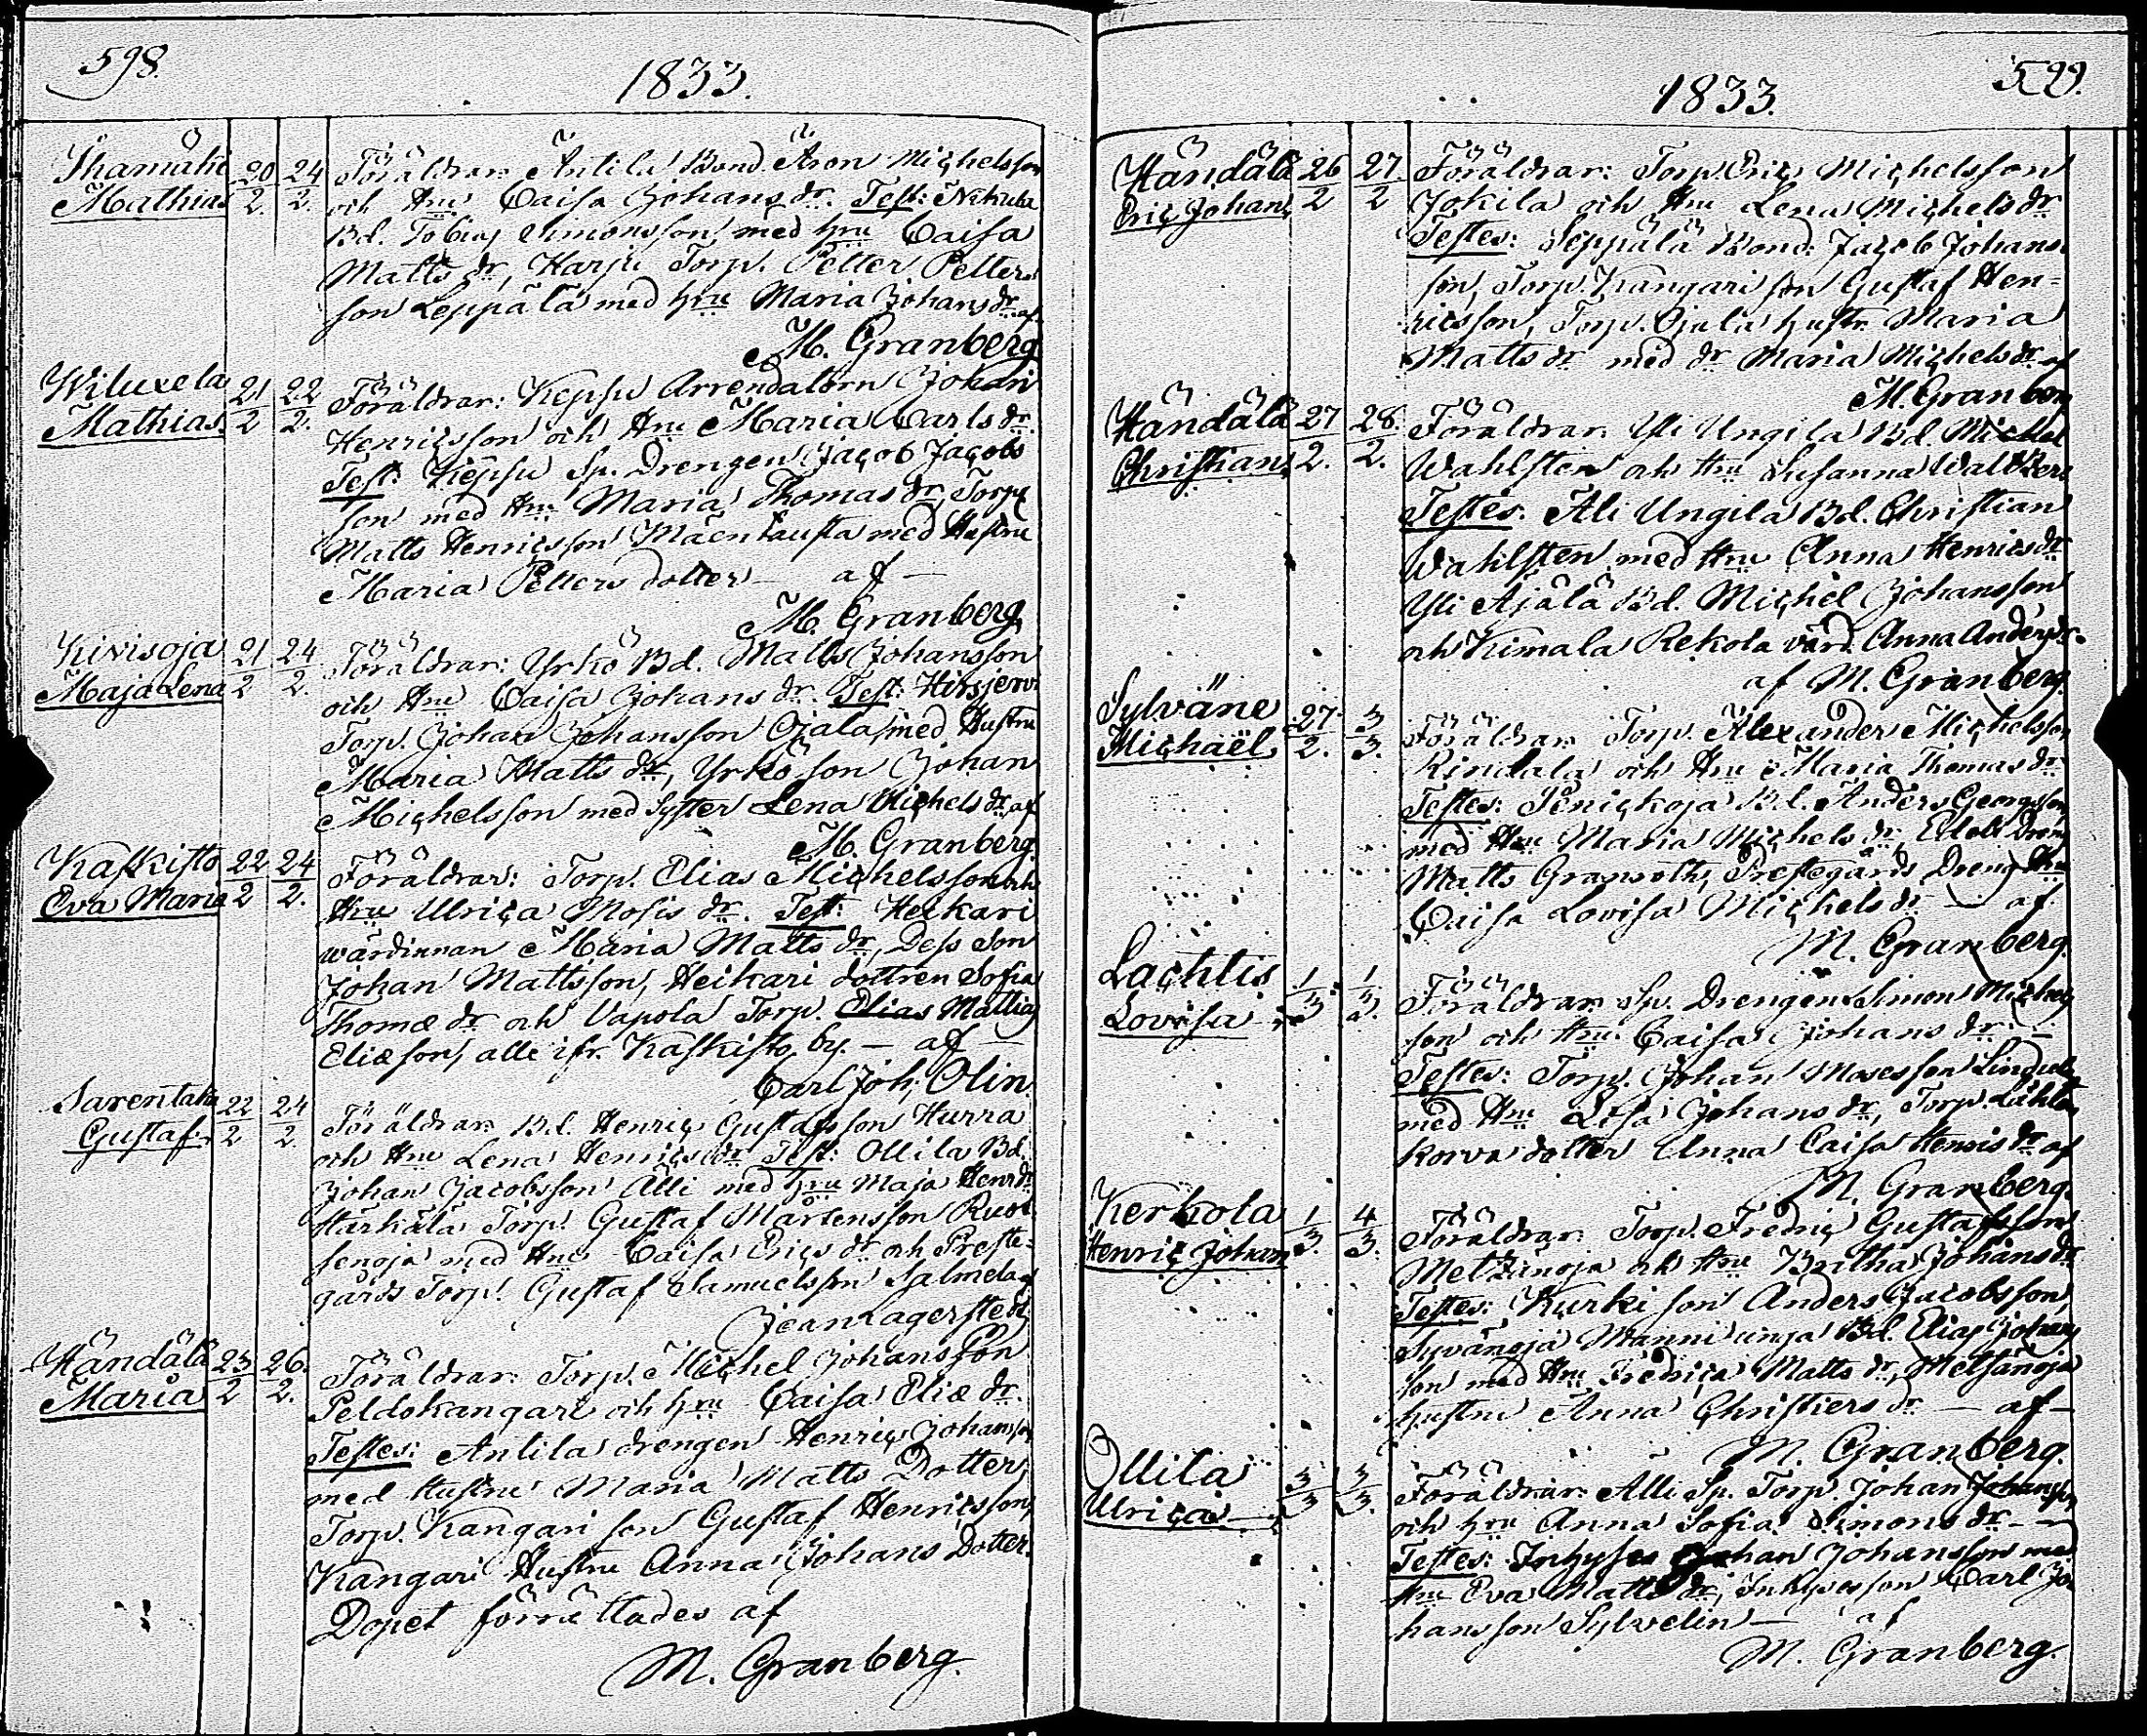 598.
1833.
Ihamäki
Mathias
20/2. 24/2.
Föräldrar: Antila Bond. Aron Michelsson
och Hru Caisa Johans dr. Test: Nikula
Bd. Tobias Simonsson med hru Caisa
Matts dr, Harju Torp. Petter Petters
son Leppälä med hru Maria Johans dr af
M. Granberg
Wiluxela
Mathias
21/2 22/2.
Föräldrar: Keppu Arrendatorn Johan
Henricsson och Hru Maria Carls dr.
Test: Keppu Sp. Drengen Jacob Jacobs
son med Hru Maria Thomas dr, Torp.
Matts Henricsson Mäentausta med Hustru
Maria Petters dotter – af –
M. Granberg
Kivisoja
Maja Lena
21/2 24/2.
Föräldrar: Yrkö Bd. Matts Johansson
och Hru Caisa Johans dr. Test: Hirsjerwi
Torp. Johan Johansson Ojala med Hustru
Maria Matts dr, Yrkö son Johan
Michelsson med Syster Lena Michels dr af
M. Granberg
Kaskisto
Eva Maria
22/2 24/2.
Föräldrar: Torp. Elias Michelsson och
Hru Ulrica Mosis dr. Test: Heikari
wärdinnan Maria Matts dr, Dess Son
Johan Mattsson, Heikari dottren Sofia
Thomæ dr och Vapola Torp. Elias Mattias
Eliæson, alle ifr. Kaskisto by. – af –
Carl Joh. Olin.
Sarentaka
Gustaf
22/2 24/2.
Föräldrar: Bd. Henric Gustafsson Hurra
och Hru Lena Henrics dr Test: Ollila Bd.
Johan Jacobsson Alli med hru Maja Henr dr
Härkälä Torp. Gustaf Mårtensson
med Hru Caisa Erics dr och Preste-
gårds Torp. Gustaf Samuelsson Salmela af
Jean Lagerstedt
Händälä
Maria
23/2 26/2.
Föräldrar: Torp. Michel Johansson
Peldokangare och hru Caisa Eliæ dr.
Testes: Antila drengen Henric Johansson
med Hustru Maria Matts Dotter,
Torp. Kangari son Gustaf Henricsson,
Kangari Hustru Anna Johans Dotter.
Dopet förrättades af
M. Granberg.
599.
1833.
Händälä
Eric Johan
26/2 27/2
Föräldrar: Torp. Eric Michelsson
Jokila och Hru Lena Michels dr
Testes: Seppälä Bond. Jacob Johans
son, Torp. Kangari son Gustaf Hen-
ricsson, Torp. Ojala hustr. Maria
Matts dr med dr Maria Michels dr af
M. Granberg
Händälä
Christian
27/2. 28/2.
Föräldrar: Yli Ungila Bd. Michel
Wahlsten och Hru Susanna
Testes: Ali Ungila Bd. Christian
Wahlsten med Hru Anna Henrics dr
Yli Äjälä Bd. Michel Johansson
och Kimala Rekola värd. Anna Anders dr.
af M. Granberg.
Sylväne
Michaël
27/2. 3/3.
Föräldrar: Torp. Alexander Michelsson
Rindala och Hru Maria Thomas dr
Testes: Bd. Anders Georgsson
med Hru Maria Michels dr, Dreng
Matts Granroth, Prestegårds Dreng Hru
Caisa Lovisa Michels dr – af
M. Granberg.
Lachtis
Lovisa
1/3 1/3.
Föräldrar: Sp. Drengen Simon Michels
son och Hru Caisa Johans dr. –
Testes: Torp. Johan Mosesson
med Hru Lisa Johans dr, Torp.
korva dotter Anna Caisa Henrics dr af
M. Granberg.
Kerkola
Henric Johan
1/3. 4/3.
Föräldrar: Torp. Fredric Gustafsson
Metzänoja och Hru Britha Johans dr
Testes: Kurki son Anders Jacobsson,
Syvänoja Bd. Elias Johans
son med Hru Fredrica Matts dr, Metsänoja
hustru Anna Christiers dr – af –
M. Granberg.
Ollila
Ulrica
3/3 3/3.
Föräldrar: Alli Sp. Torp. Johan Johansson
och hru Anna Sofia Simons dr –
Testes: Inhyses Johan Johansson med
Hru Eva Matts dr, Inhyses son Carl Jo
hansson Sylvelin – af
M. Granberg.